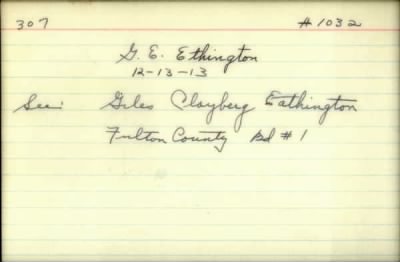 307 # 1032
G. E. Ethington
12-13-13
See: Giles Clayberg Eathington
Fulton County Bd #1